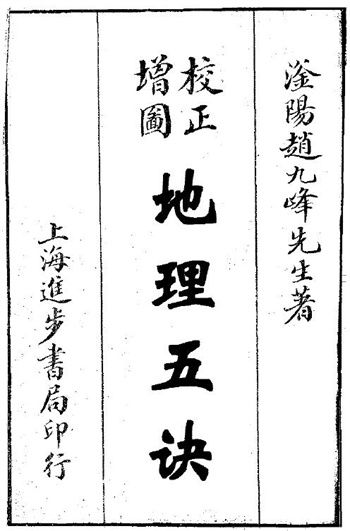 滏陽趙九峰先生著
校正
增圖
地理五诀
上海進步書局印行